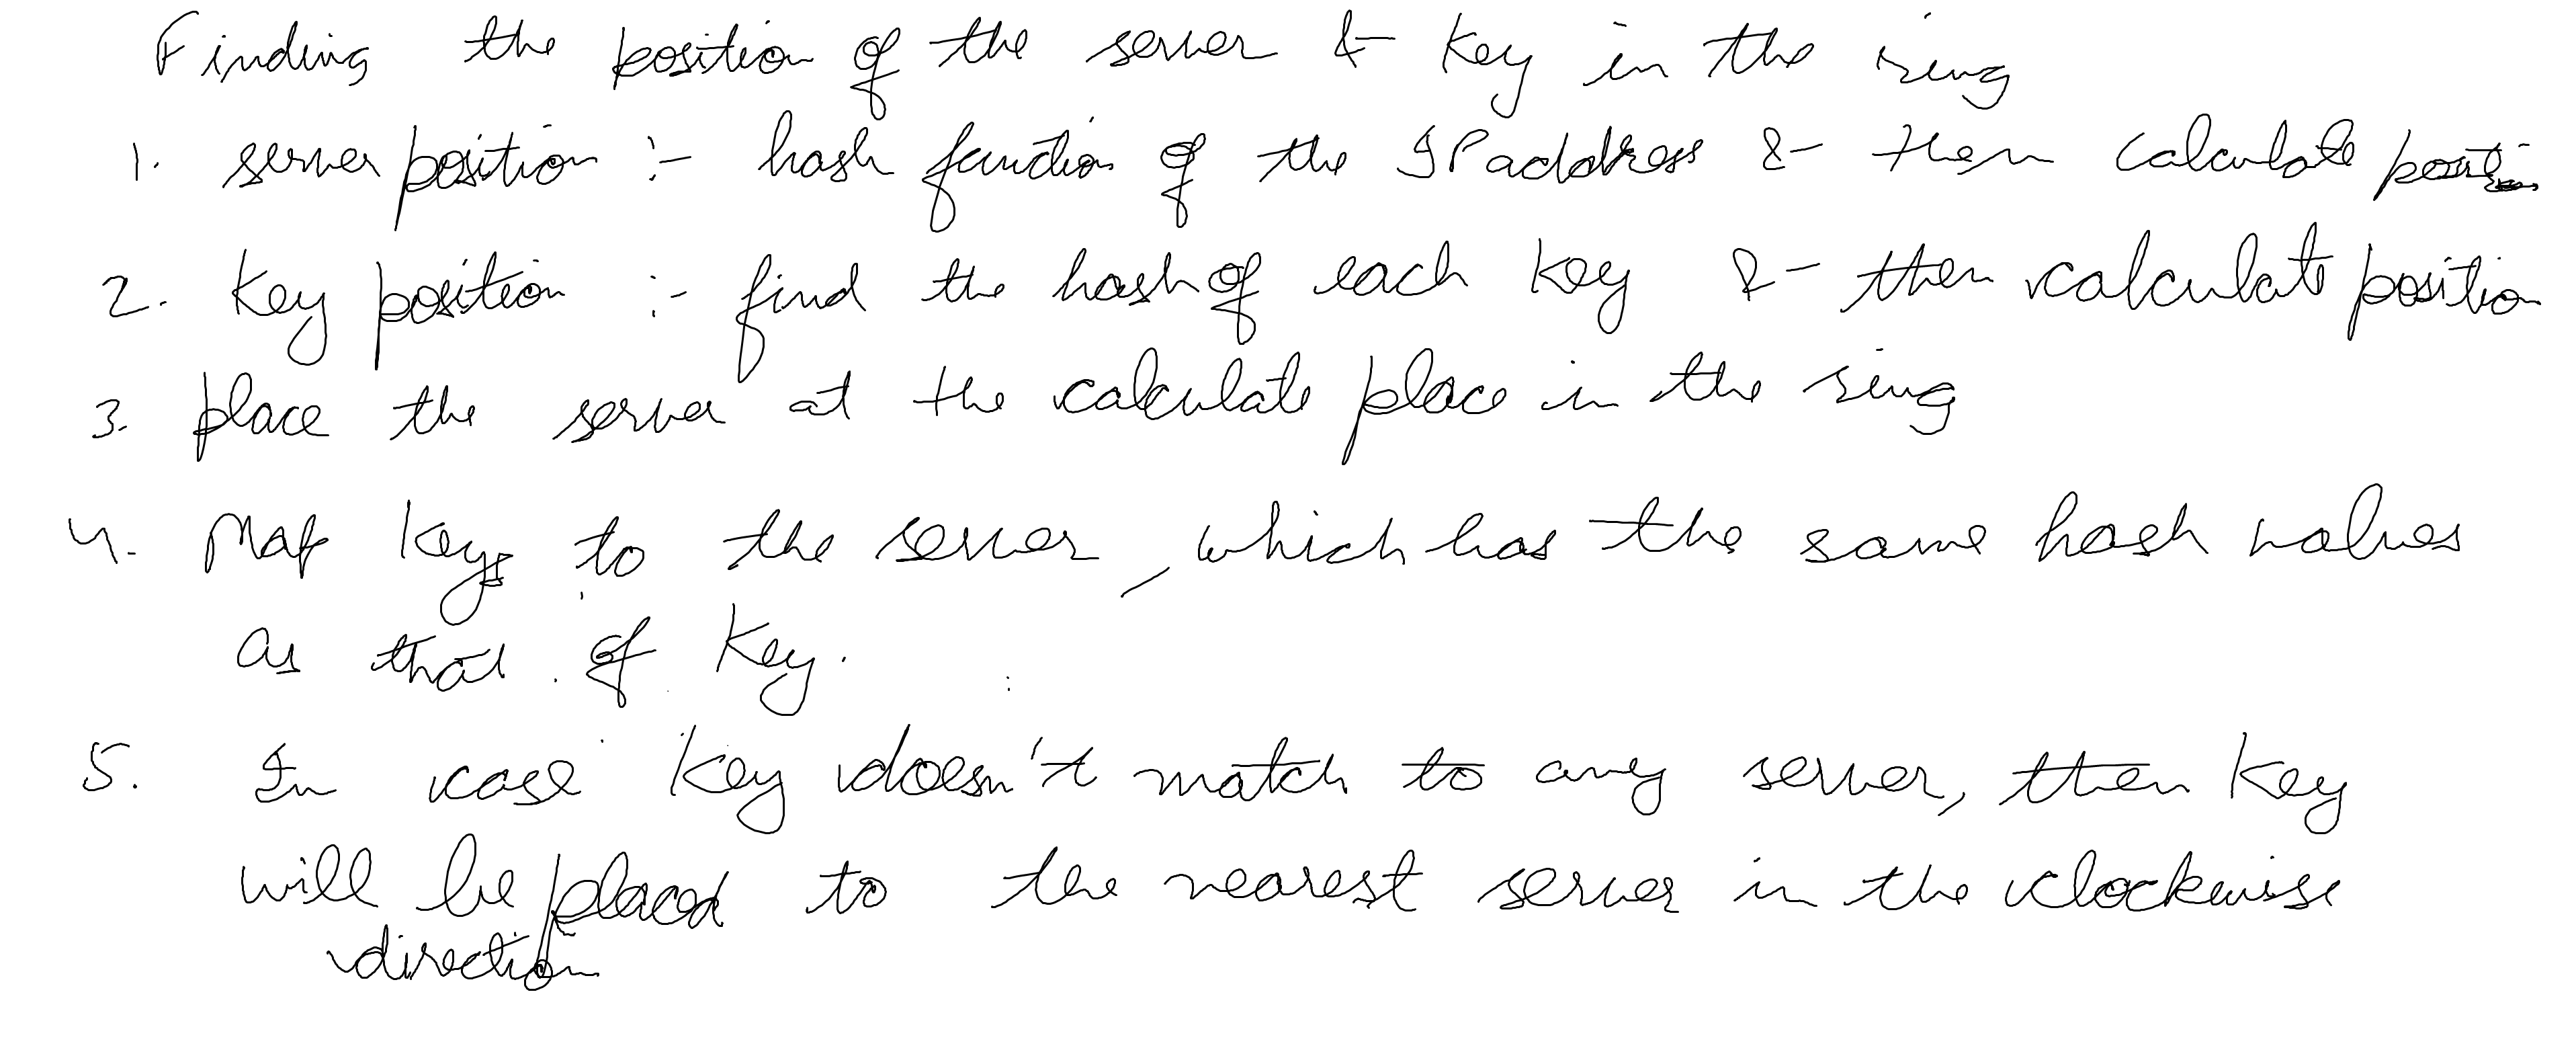 Finding the position of the server & key in the ring
1. server position :- hash function of the IP address & then calculate position
2. Key position :- find the hash of each key & then calculate position
3. place the server at the calculate place in the ring
4. Map keys to the server, which has the same hash values
as that of key.
5. In case key doesn't match to any server, then key
will be placed to the nearest server in the clockwise
direction